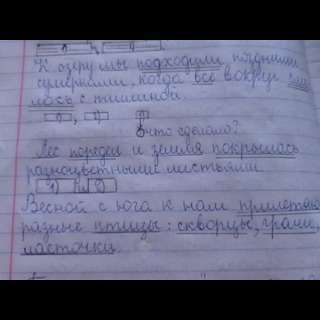 К озеру мы подходили поздними
сумерками, когда всё вокруг сли
лось с тишиной.
1 , 2
что сделало?
Лес поредел и земля покрылась
разноцветными листьями
1 и 2
Весной с юга к нам прилетаю
разные птицы: скворцы, грачи,
ласточки